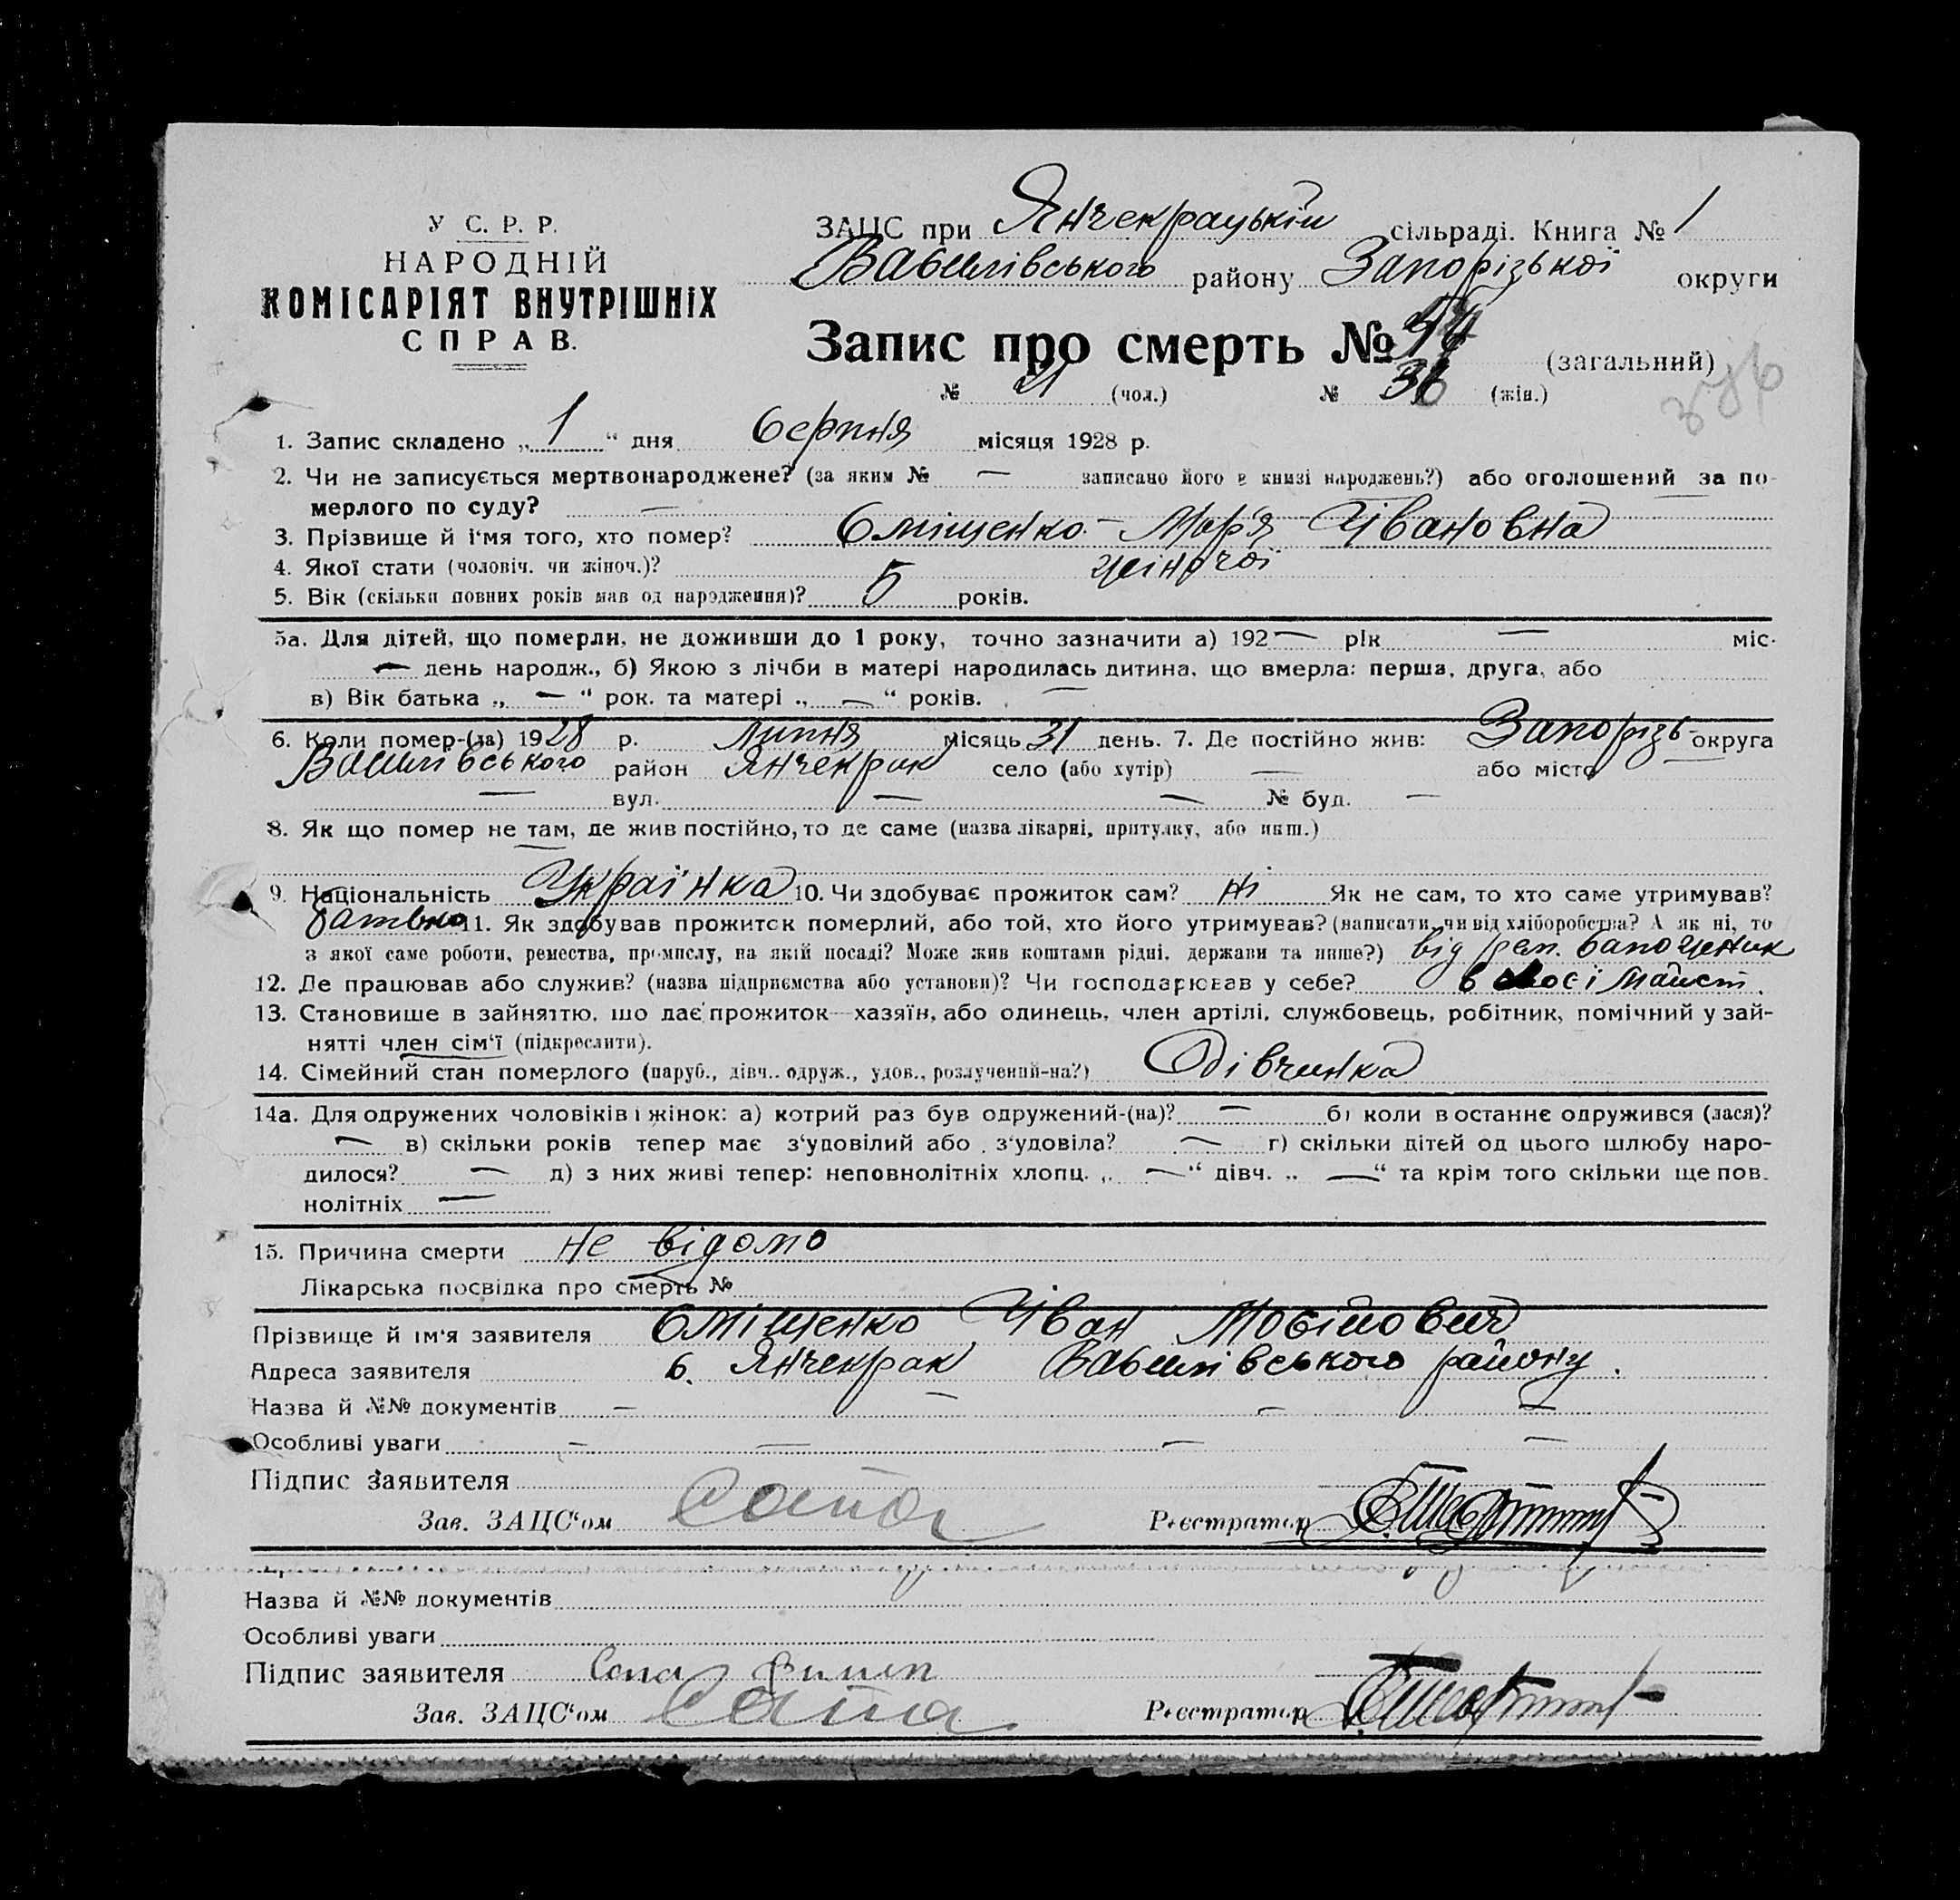 У С. Р. Р.
НАРОДНІЙ
КОМІСАРІЯТ ВНУТРІШНІХ
СПРАВ.
ЗАЦС при Янчекрацькій сільраді. Книга № 1
Василівського району Запорізької округи
Запис про смерть № (загальний)
№ 21 (чол.) № 36 (жін.)
1. Запис складено „ 1 “ дня Серпня місяця 1928 р.
2. Чи не записується мертвонароджене? (за яким № — записано його в книзі народжень?) або оголошений за по-
мерлого по суду? —
3. Прізвище й і'мя того, хто помер? Сміщенко - Мар'я Івановна
4. Якої стати (чоловіч. чи жіноч.)? жіночої
5. Вік (скільки повних років мав од народження)? 5 років.
5а. Для дітей, що померли, не доживши до 1 року, точно зазначити а) 192 — рік — міс.
— день народж., б) Якою з лічби в матері народилась дитина, що вмерла: перша, друга, або
в) Вік батька „ — “ рок. та матері „ — “ років. —
6. Коли помер-(ла) 1928 р. липня місяць 31 день. 7. Де постійно жив: Запорізь- округа
Василівського район Янчекрак село (або хутір) — або місто
— вул. — — № буд. —
8. Як що помер не там, де жив постійно, то де саме (назва лікарні, притулку, або инш.)
9. Національність Українка 10. Чи здобуває прожиток сам? ні Як не сам, то хто саме утримував?
батько 11. Як здобував прожиток померлий, або той, хто його утримував? (написати, чи від хліборобства? А як ні, то
з якої саме роботи, ремества, промислу, на якій посаді? Може жив коштами рідні, держави та инше?) від рем. сапожник
12. Де працював або служив? (назва підприємства або установи)? Чи господарював у себе? в своєі майст.
13. Становише в зайняттю, що дає прожиток—хазяїн, або одинець, член артілі, службовець, робітник, помічний у зай-
нятті член сім'ї (підкреслити).
14. Сімейний стан померлого (паруб., дівч.. одруж., удов., розлучений-на?) Дівчинка
14а. Для одружених чоловіків і жінок: а) котрий раз був одружений-(на)? — б) коли востаннє одружився (лася)?
— в) скільки років тепер має з'удовілий або з'удовіла? — г) скільки дітей од цього шлюбу наро-
дилося? — д) з них живі тепер: неповнолітніх хлопц. „ — “ дівч. „ — “ та крім того скільки ще пов.
нолітніх —
15. Причина смерти не відомо
Лікарська посвідка про смерть №
Прізвище й ім'я заявителя Сміщенко Іван Мосійович
Адреса заявителя с. Янчекрак Василівського району.
Назва й №№ документів — — — —
Особливі уваги — — — —
Підпис заявителя
Зав. ЗАЦС'ом Сапа Реєстратор
Назва й №№ документів
Особливі уваги
Підпис заявителя Сапа
Зав. ЗАЦС'ом Сапа Реєстратор